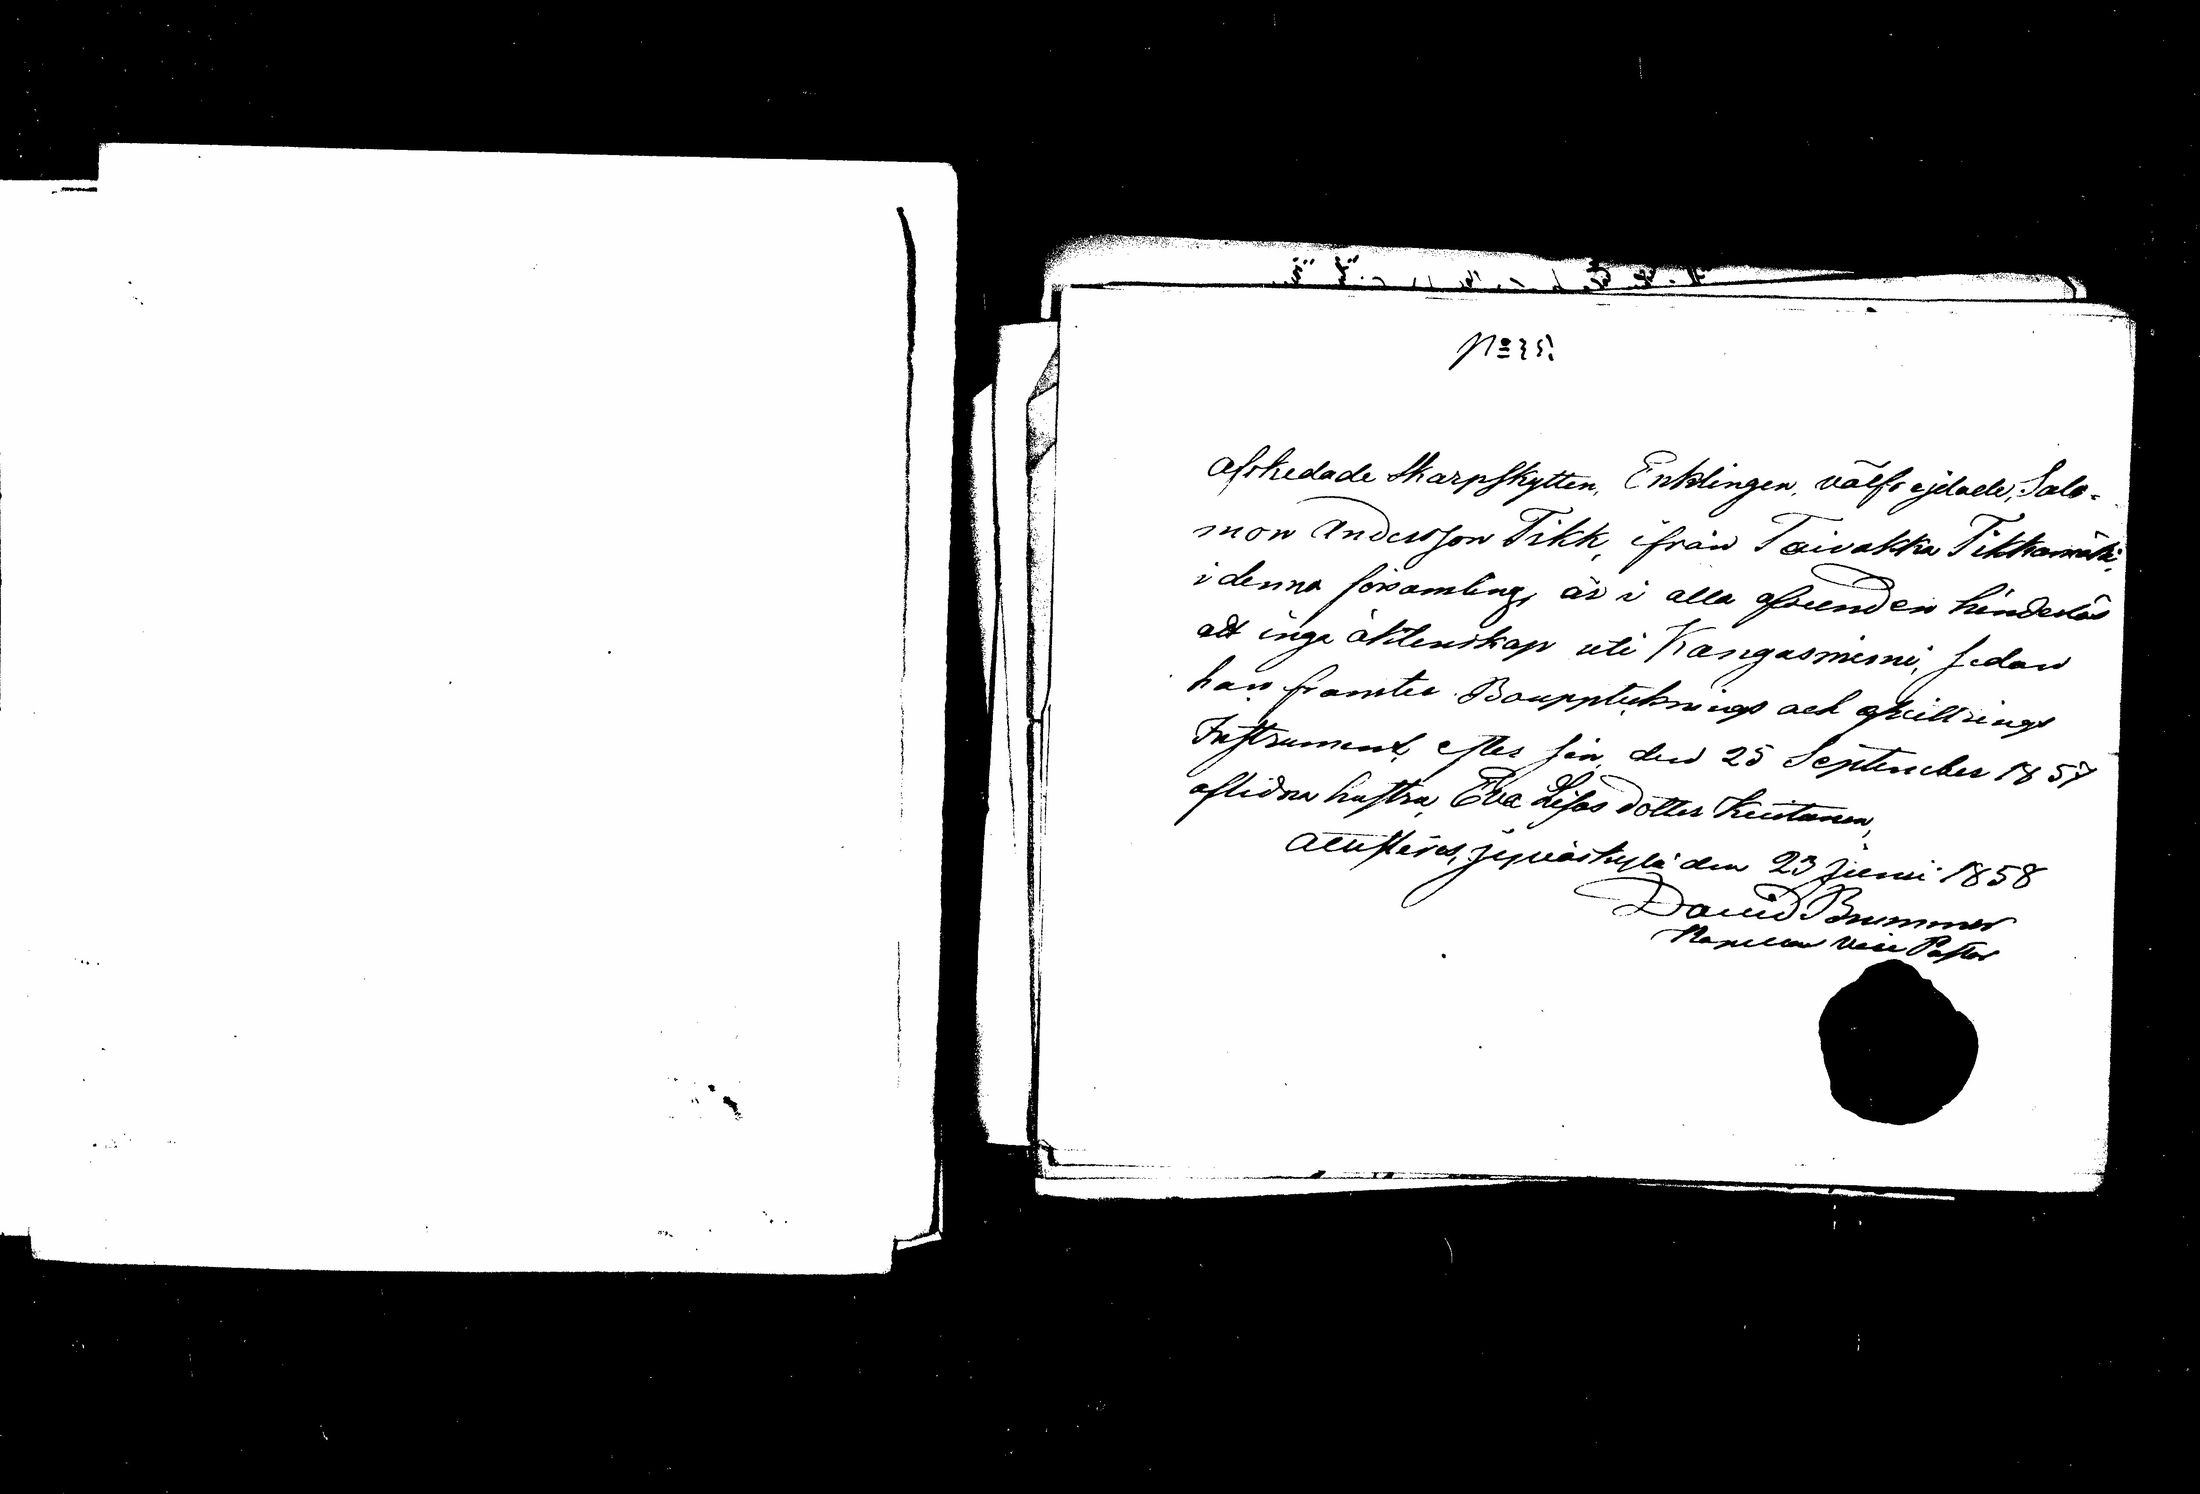 N:o 35!
Afskedade Skarpskytten, Enklingen, välfrejdade, Salo-
mon Andersson Tikk, ifrån Toivakka Tikkamäki,
i denna församling, är i alla afseenden hinderlös
att inga äktenskap uti Kangasniemi, sedan
han framter Bouppteknings och afvittrings
Instrument, efter sin, den 25 September 1857
aflidna hustru, Eva Lisas dotter Kuitunen,
Attesteras, Jyväskylä den 23 Junii 1858
David Brummer
Kapellan Vice Pastor